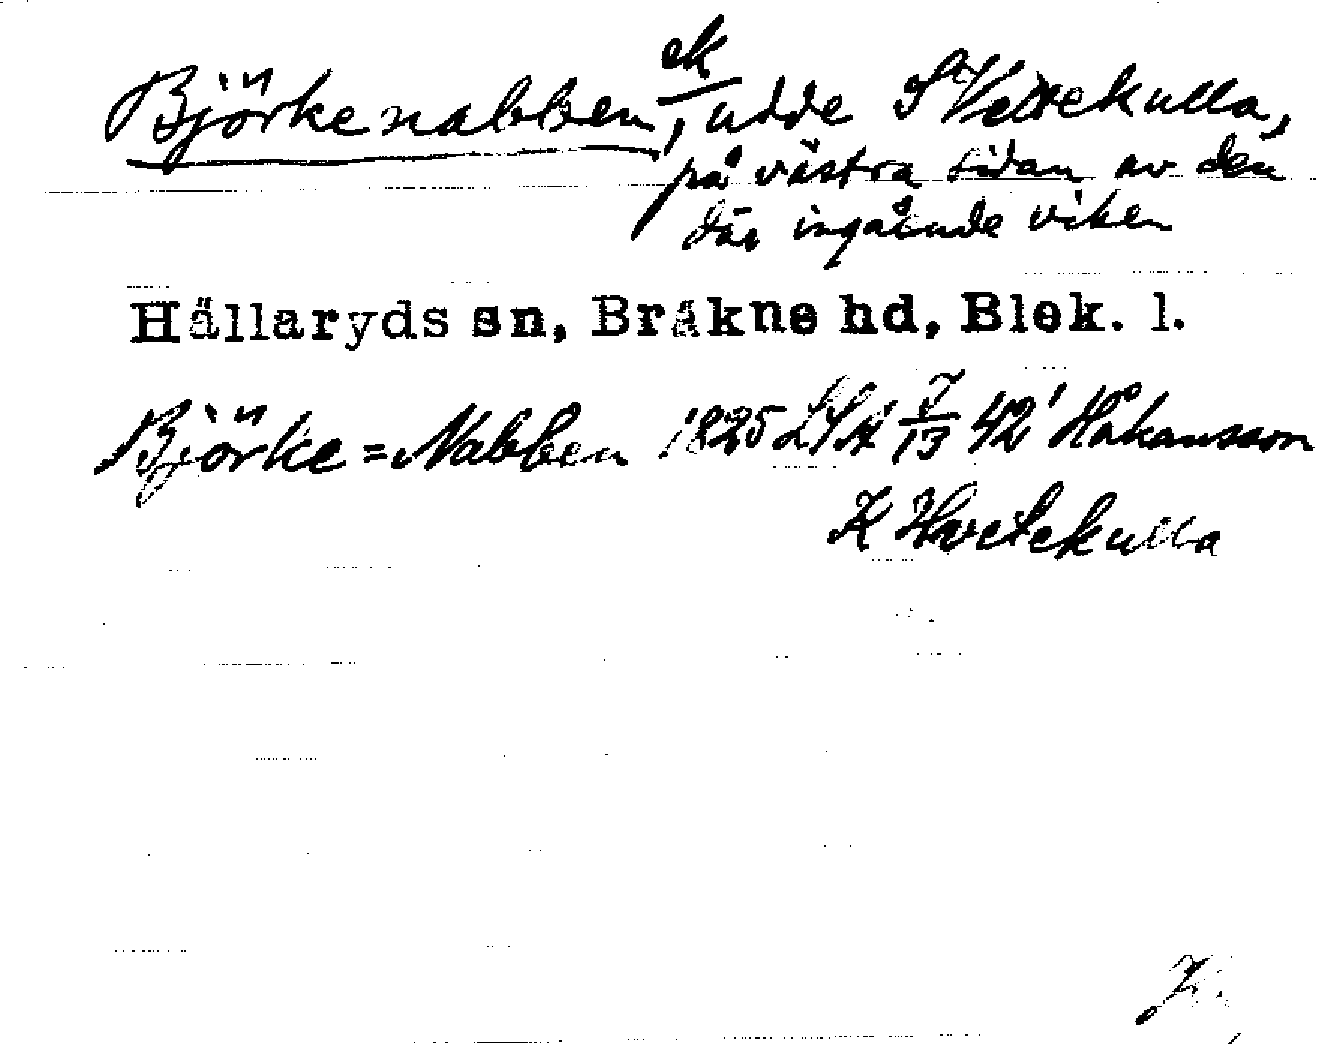 Björkenabben, ek udde St Vettekulla,
på västra sidan av den
där ingående viken
Hällaryds sn, Bräkne hd, Blek. l.
Björke=Nabben 1825 LSA 7/13 42' Håkansson
K Hvetekulla